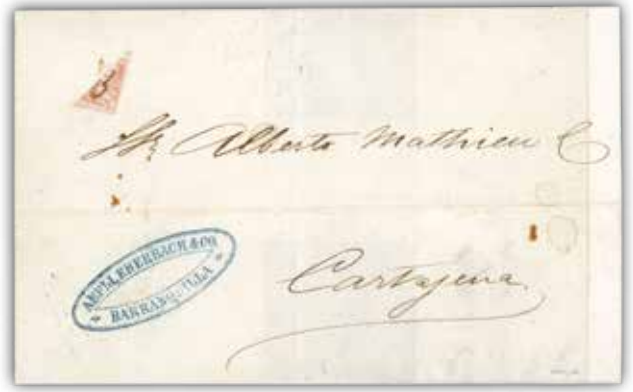 Alberto Mathieu
AEPLI, EBERBACH & CO
BARRANQUILLA
Cartajena